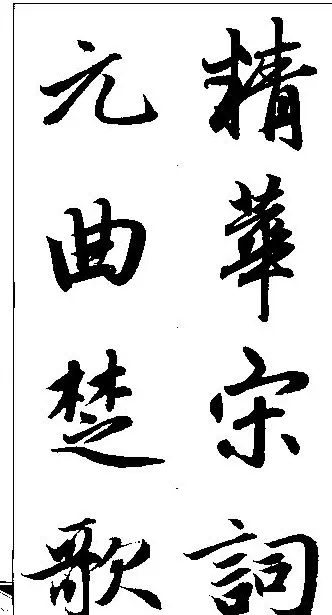 精華宋詞
元曲楚歌